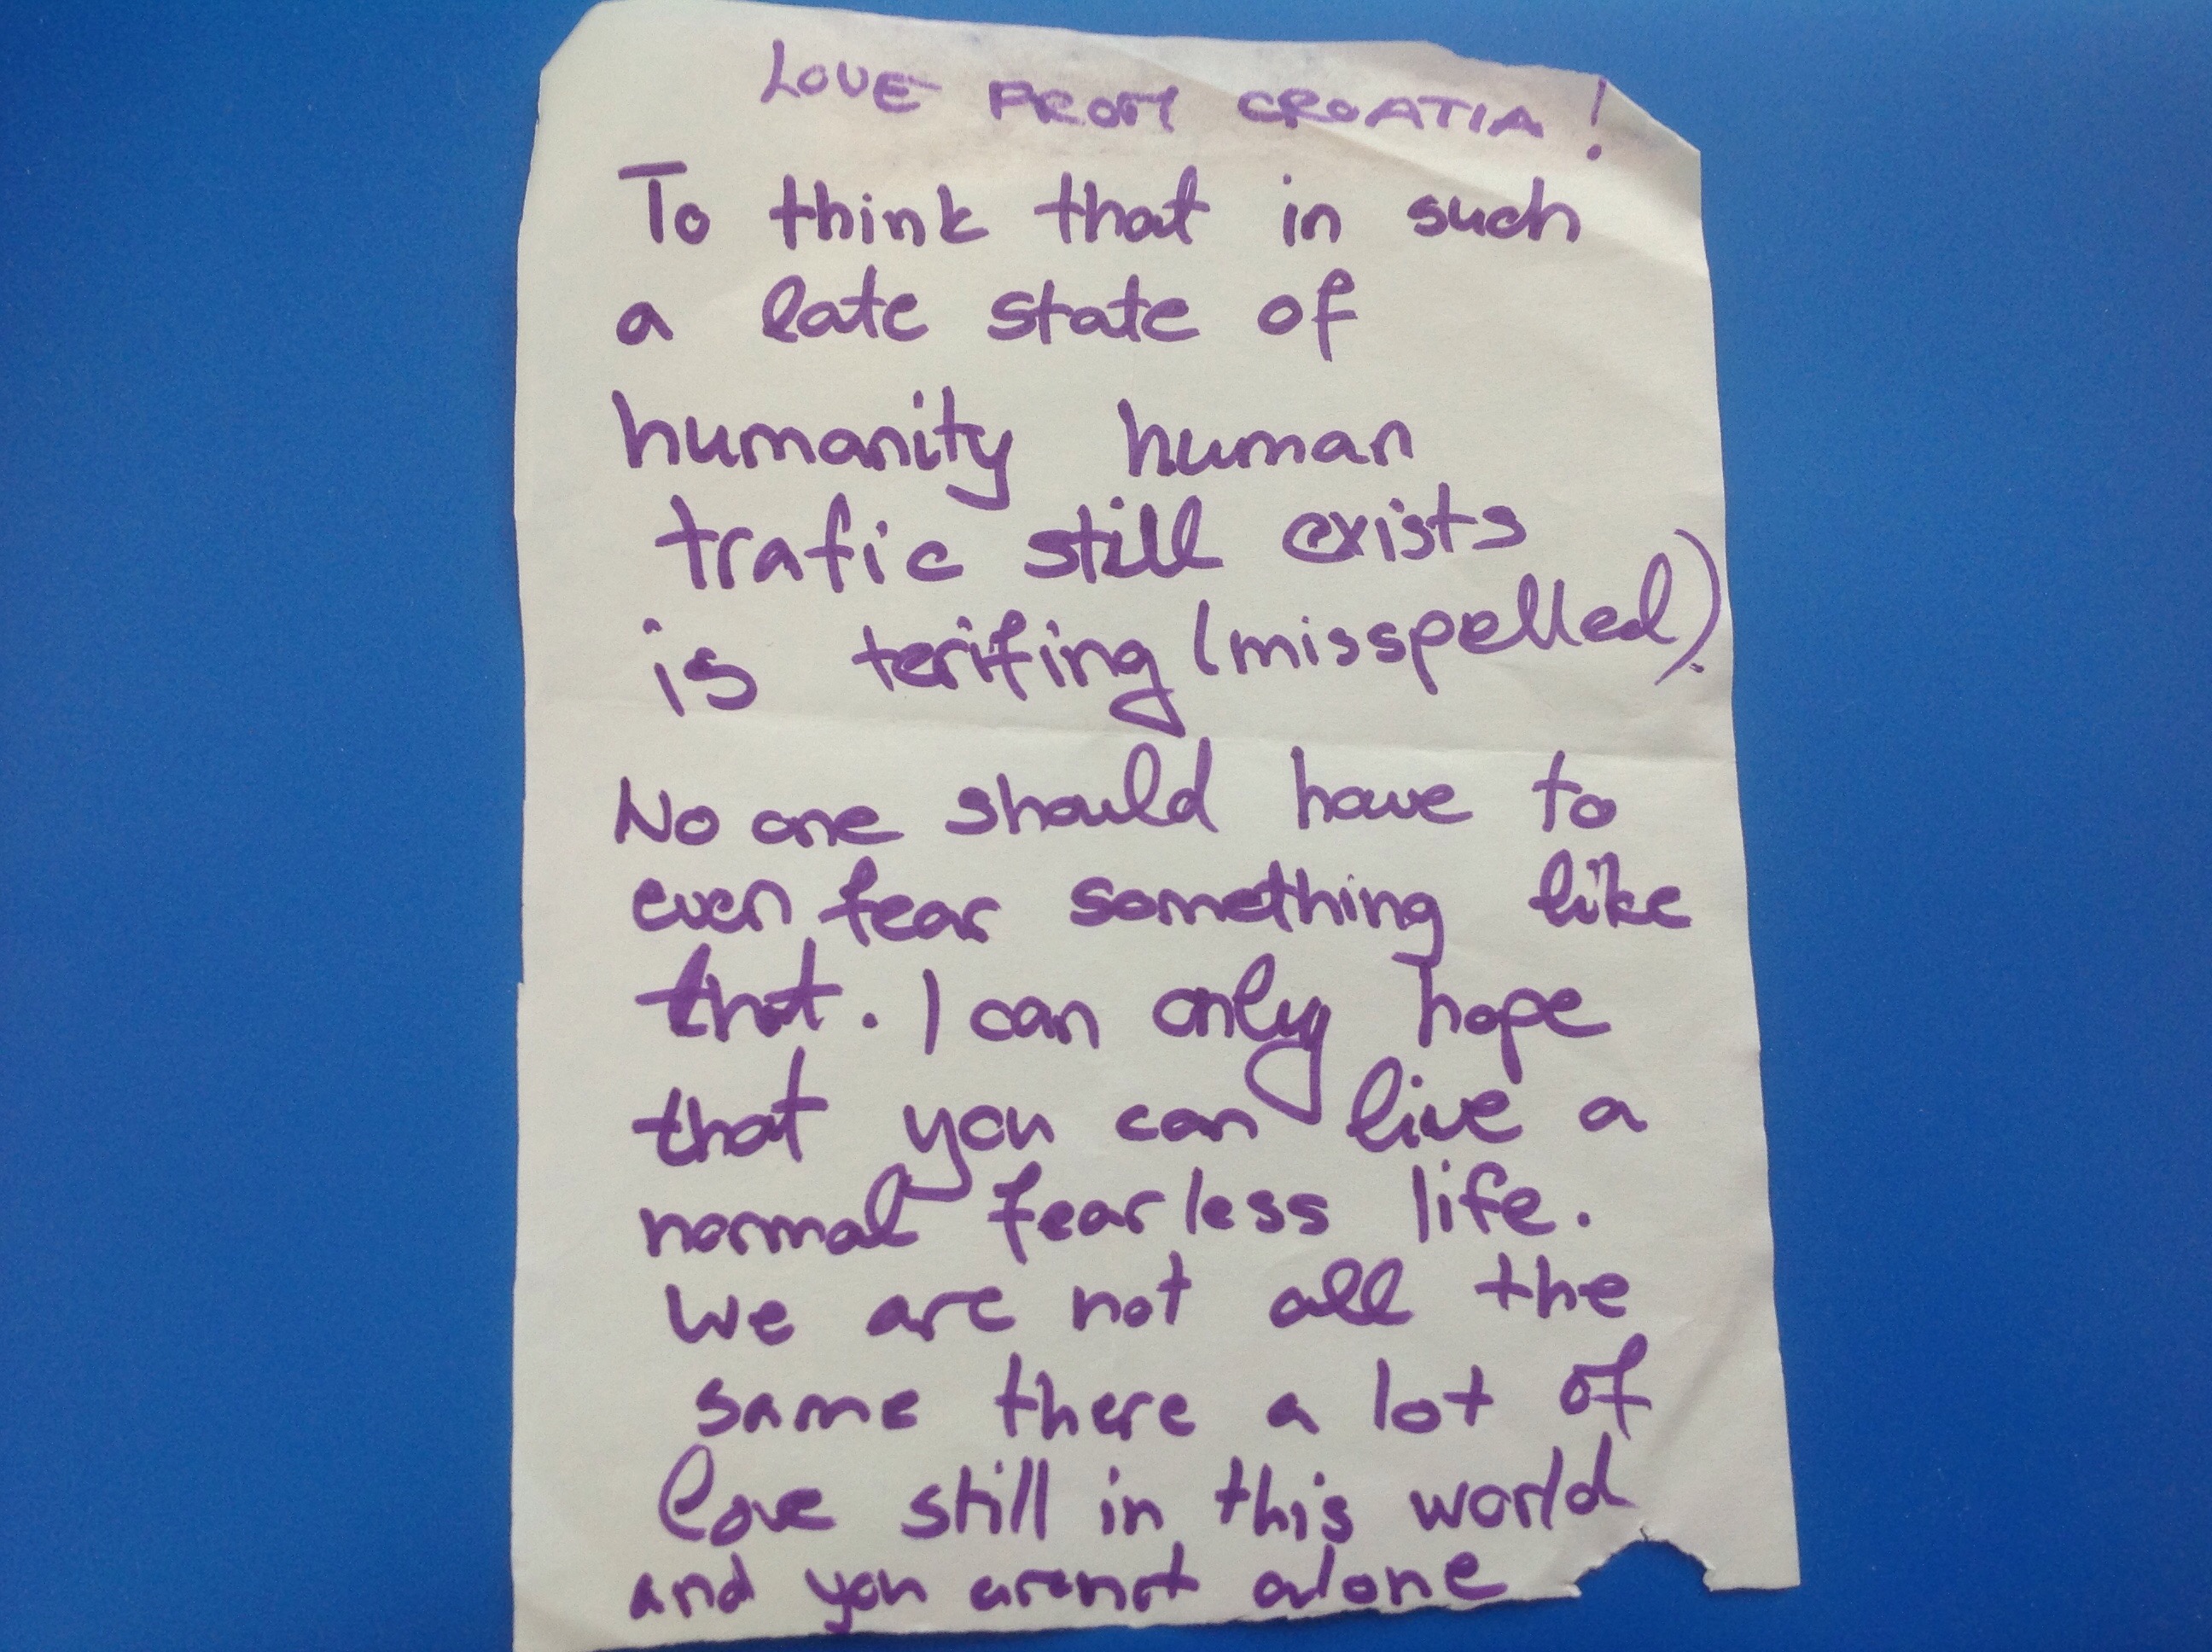 LOVE FROM CROATIA!
To think that in such
a late state of
humanity human
trafic still exists
is terifing (misspelled).
No one should have to
even fear something like
that. I can only hope
that you can live a
normal fearless life.
We are not all the
same there a lot of
love still in this world
and you arenot alone